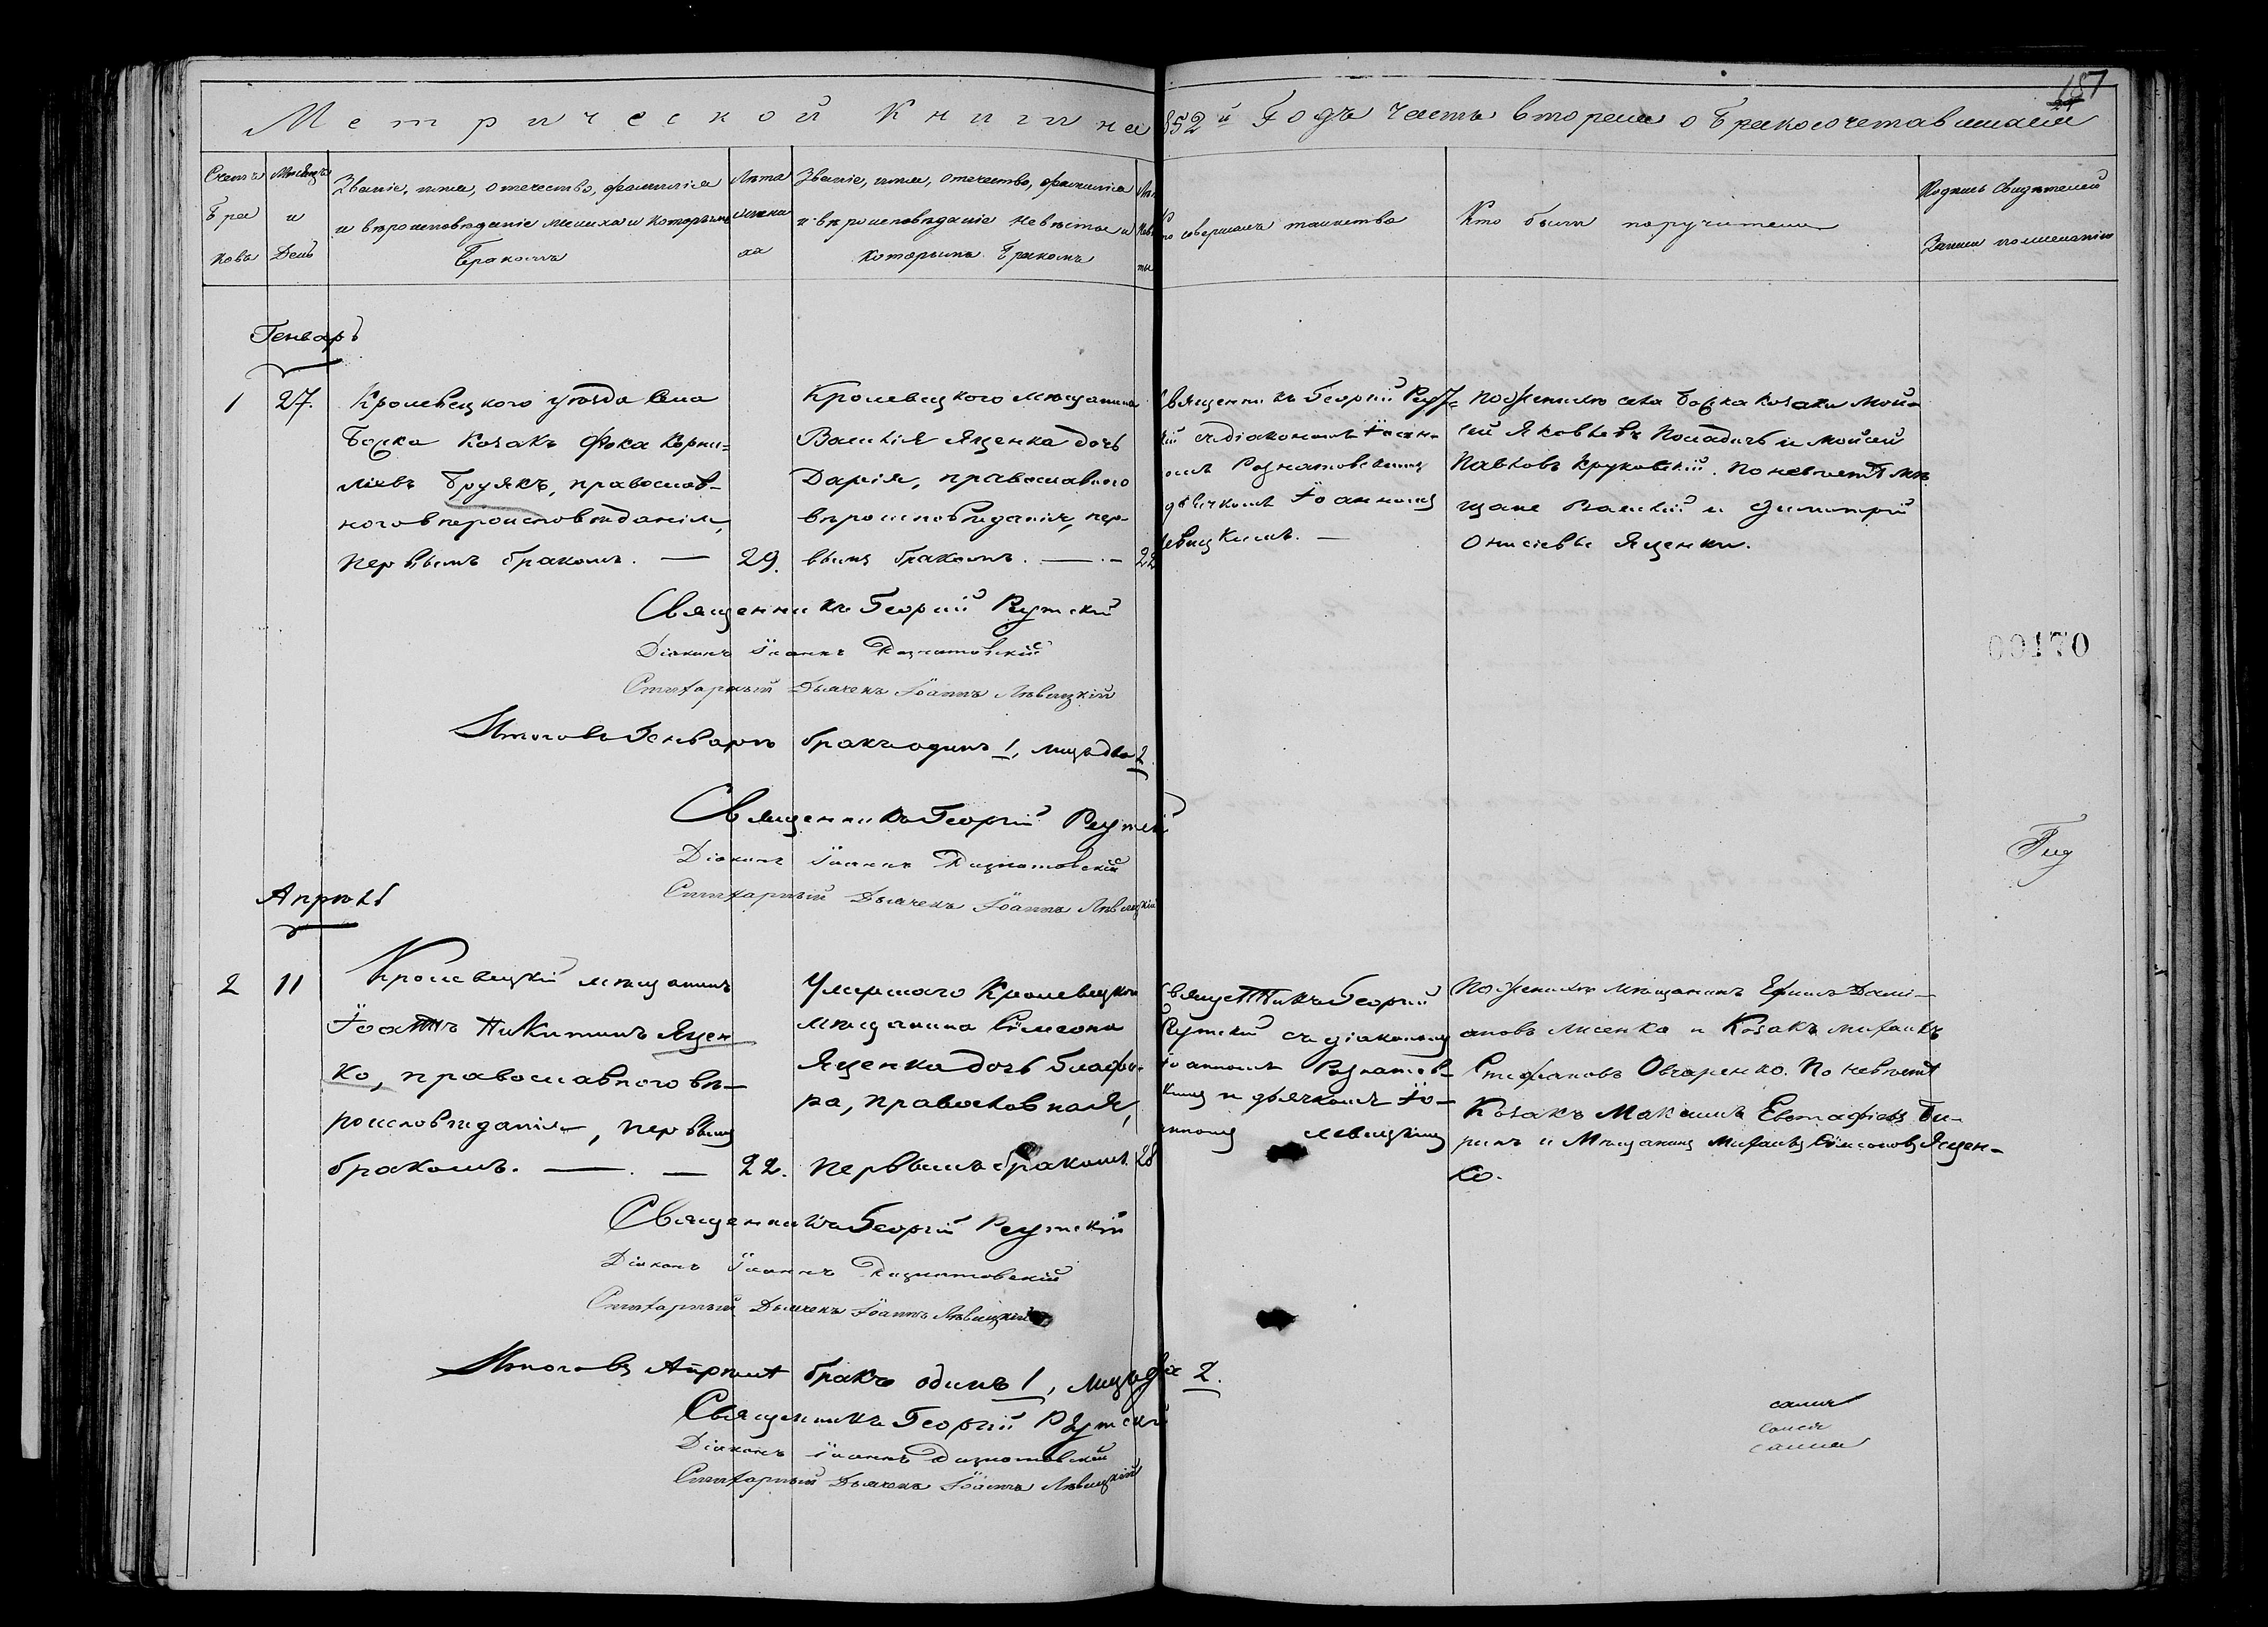 187
Метрической Книги на 1852й Годъ Часть вторая о бракосочетавшихся
Счетъ Браковъ
Мѣсяцъ и День
Званіе, имя, отечество, фамилія и вѣроисповѣданіе жениха и которымъ Бракомъ
Лѣта жениха
Званіе, имя, отечество, фамилія и вѣроисповѣданіе невѣсты и которымъ бракомъ
Кто совершалъ таинство
Кто были поручители
Подпись свидѣтелей Записи по желанію
Генварь
1
27.
Кролевецкого уѣзда села
козакъ Фока Корни-
ліевъ Бруякъ, православ-
ного вѣроисповѣданія,
первымъ бракомъ. —
29.
Кролевецкого мѣщанина
Василія Яценка дочь
Дарія, православного
вѣроисповѣданія, пер-
вымъ бракомъ. —
22
Священникъ Георгій Реут-
кій съ діакономъ Іоан-
номъ Розматовскимъ
дьячкомъ Іоанномъ
Левицкимъ. —
По женихѣ села козаки Мой-
сей Яковлевъ и Мойсей
Павловъ Круковскій. По невѣстѣ мѣ-
щане Василій и Димитрій
Онисіевы Яценки.
Священникъ Георгій Реутскій
Діаконъ Іоаннъ
Дьячекъ Іоаннъ Лѣвицкій
Итого въ Генварѣ бракъ одинъ 1, лицъ два 2.
Священникъ Георгій Реутскій
Діаконъ Іоаннъ
Дьячекъ Іоаннъ Лѣвицкій
00170
Апрѣль
2
11
Кролевецкій мѣщанинъ
Іоаннъ Никитинъ Яцен-
ко, православного вѣ-
роисповѣданія, первымъ
бракомъ. — —
22.
Умершаго Кролевецкого
мѣщанина Симеона
Яценка дочь Глафи-
ра, православная,
первымъ бракомъ.
28
Священникъ Георгій
Реутскій съ діакономъ
Іоанномъ
и дьячкомъ Іо-
анномъ Левицкимъ
По женихѣ мѣщанинъ Ефимъ Дамі-
ановъ Лисенко и Козакъ Михаилъ
Стефановъ Овчаренко. По невѣстѣ
Козакъ Максимъ Евстафіевъ Би-
рилъ и Мѣщанинъ Михаилъ Симеоновъ Яцен-
ко.
Священникъ Георгій Реутскій
Діаконъ Іоаннъ
Дьячекъ Іоаннъ Лѣвицкій
Итого въ Апрѣлѣ бракъ одинъ 1, лицъ два 2.
Священникъ Георгій Реутскій
Діаконъ Іоаннъ
Дьячекъ Іоаннъ Лѣвицкій